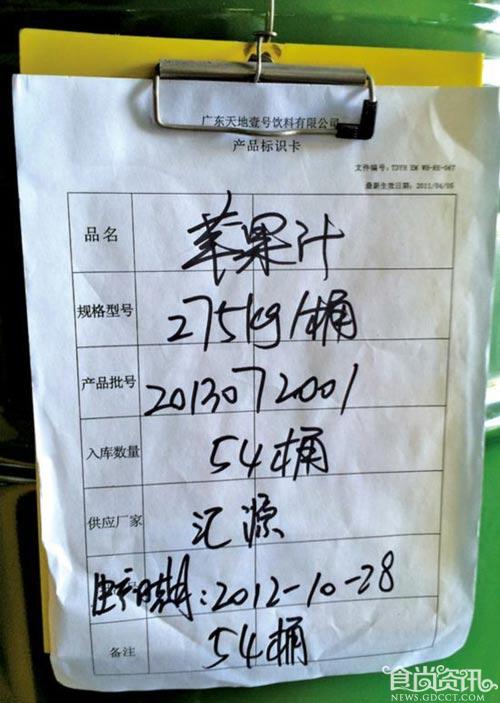 广东天地壹号饮料有限公司
产品标识卡
文件编号：TDYH EM WB-RE-047
最新生效日期：2011/04/05
品名 苹果汁
规格型号 275kg/桶
产品批号 2013072001
入库数量 54桶
供应厂家 汇源
生产日期：2012-10-28
备注 54桶
食尚资讯
NEWS.GDCCT.COM